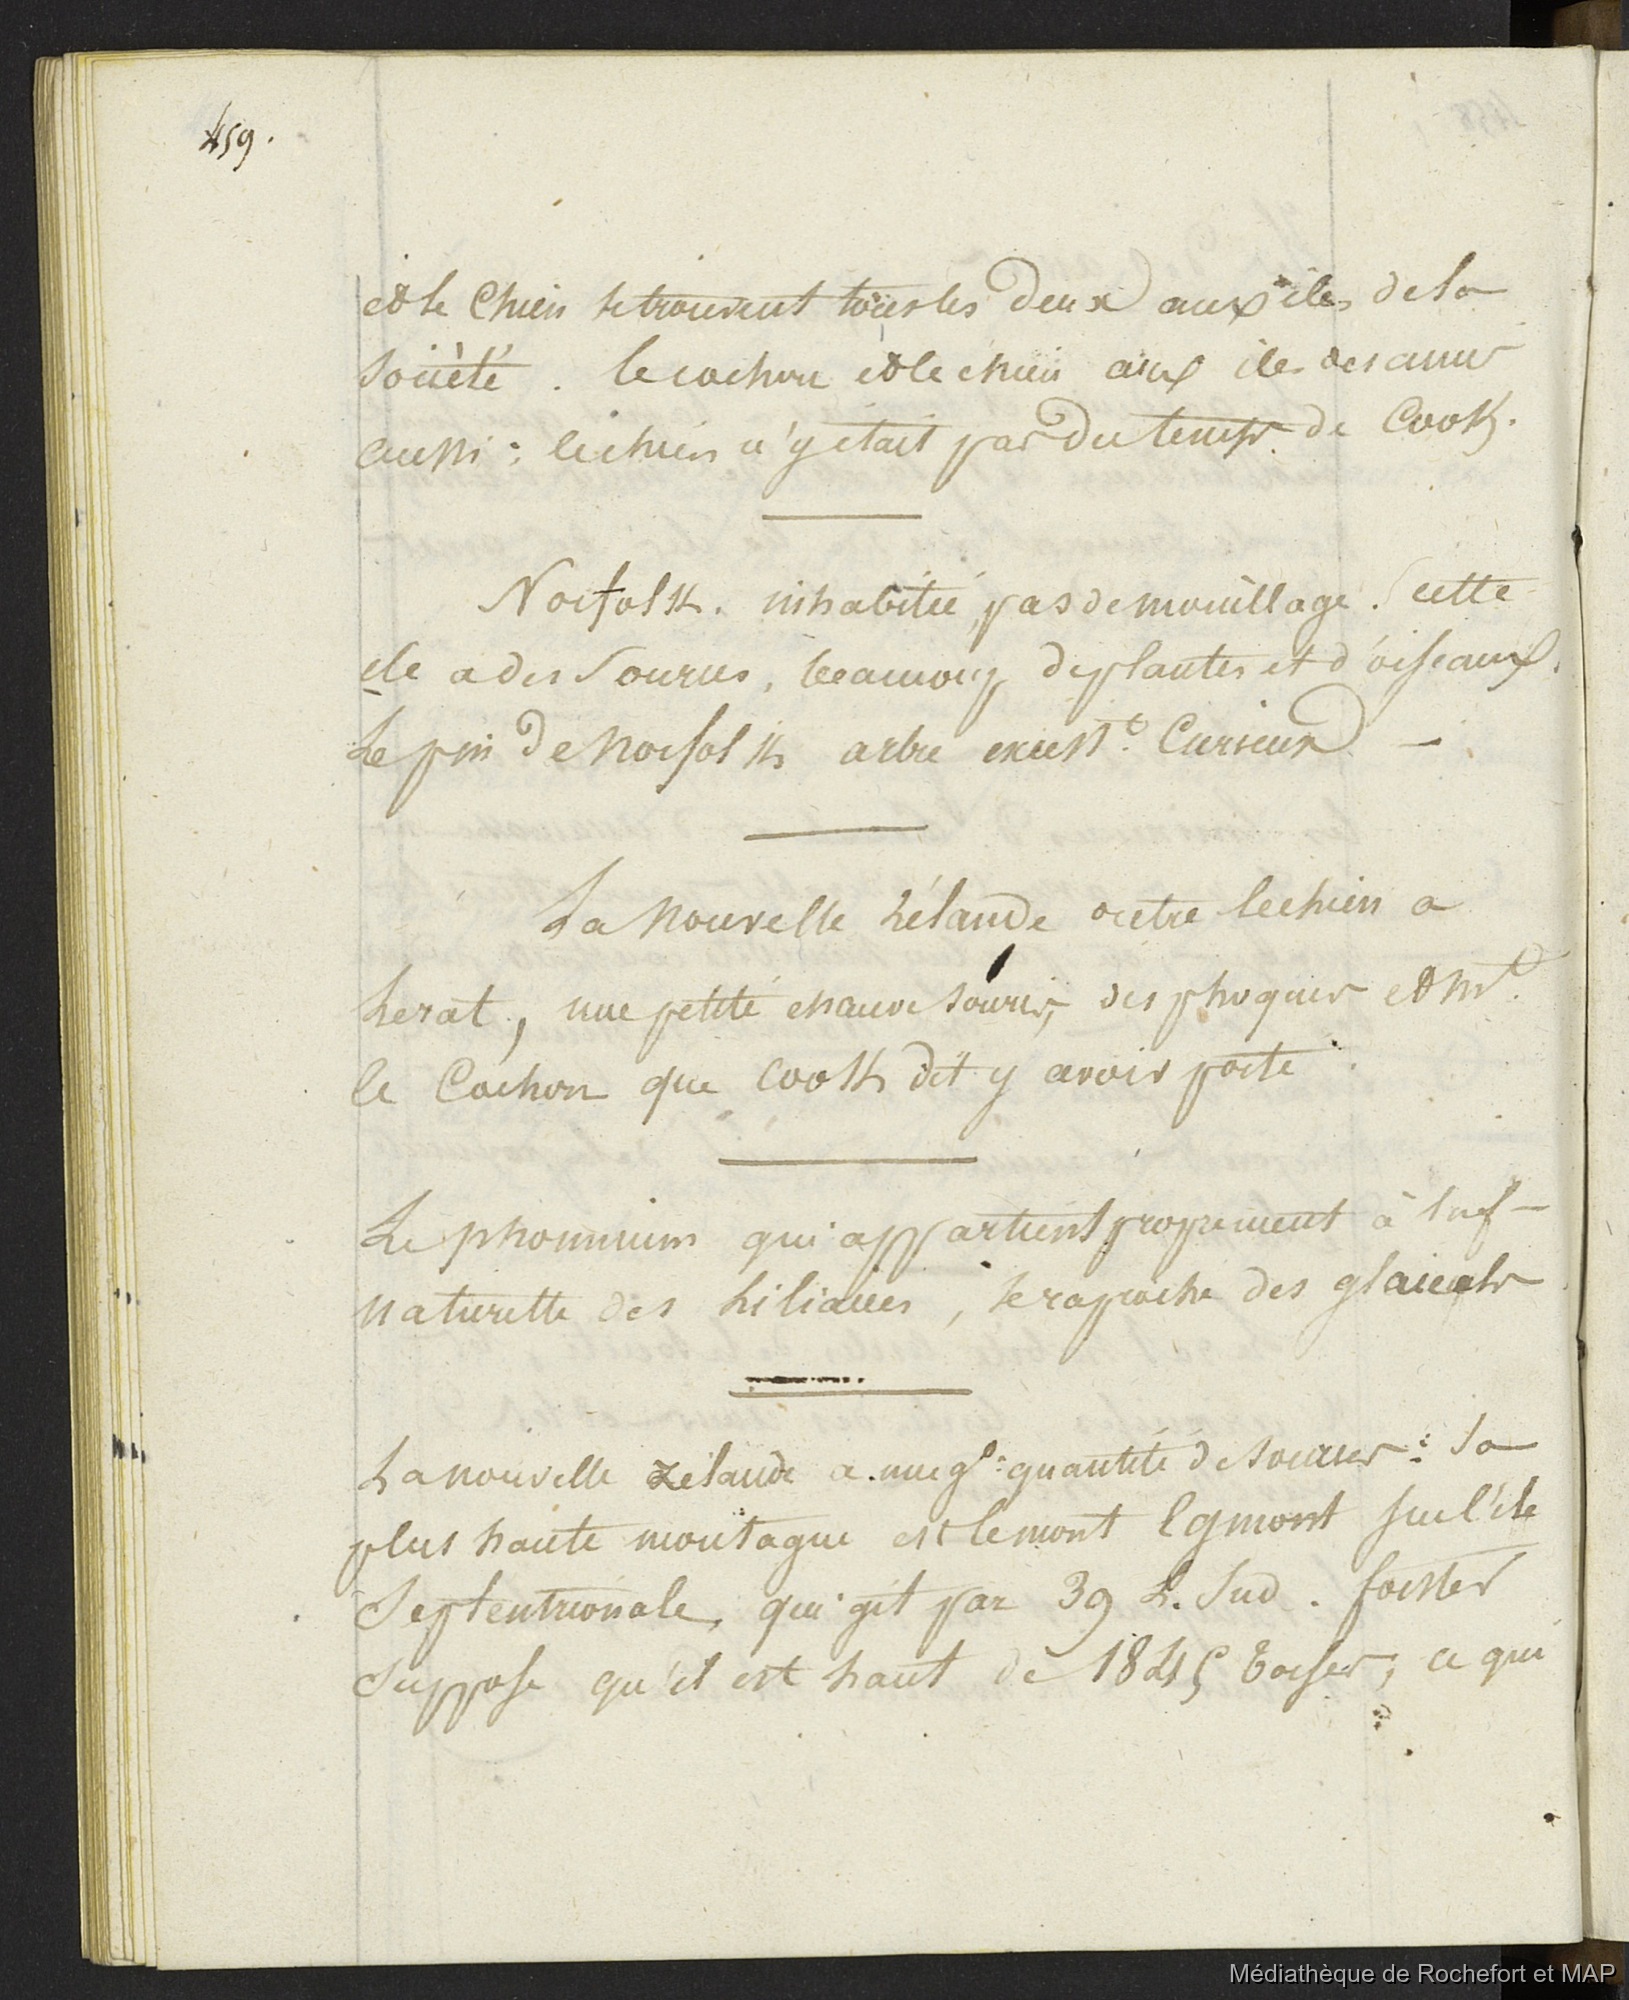 459.
et le Chien se trouvent tous les deux aux iles de la
société. le cochon et le chien aux iles des amis
aussi : le chien n'y était pas du temps de Cook.
Norfolk. inhabitée, pas de mouillage. cette
ile a des sources, beaucoup de plantes et d'oiseaux.
Le pin de Norfolk arbre excess.t Curieux —
La Nouvelle Zélande outre le chien a
le rat, une petite chauve souris, des phoques et
le Cochon que Cook dit y avoir porté.
Le phormium qui appartient proprement à
naturelle des Liliacées, se raproche des glaieuls
La nouvelle Zelande a une g.de quantité de sources : sa
plus haute montagne est le mont Egmont sur l'ile
Septentrionale, qui gît par 39 L. Sud. forster
suppose qu'il est haut de toises, ce qui
Médiathèque de Rochefort et MAP